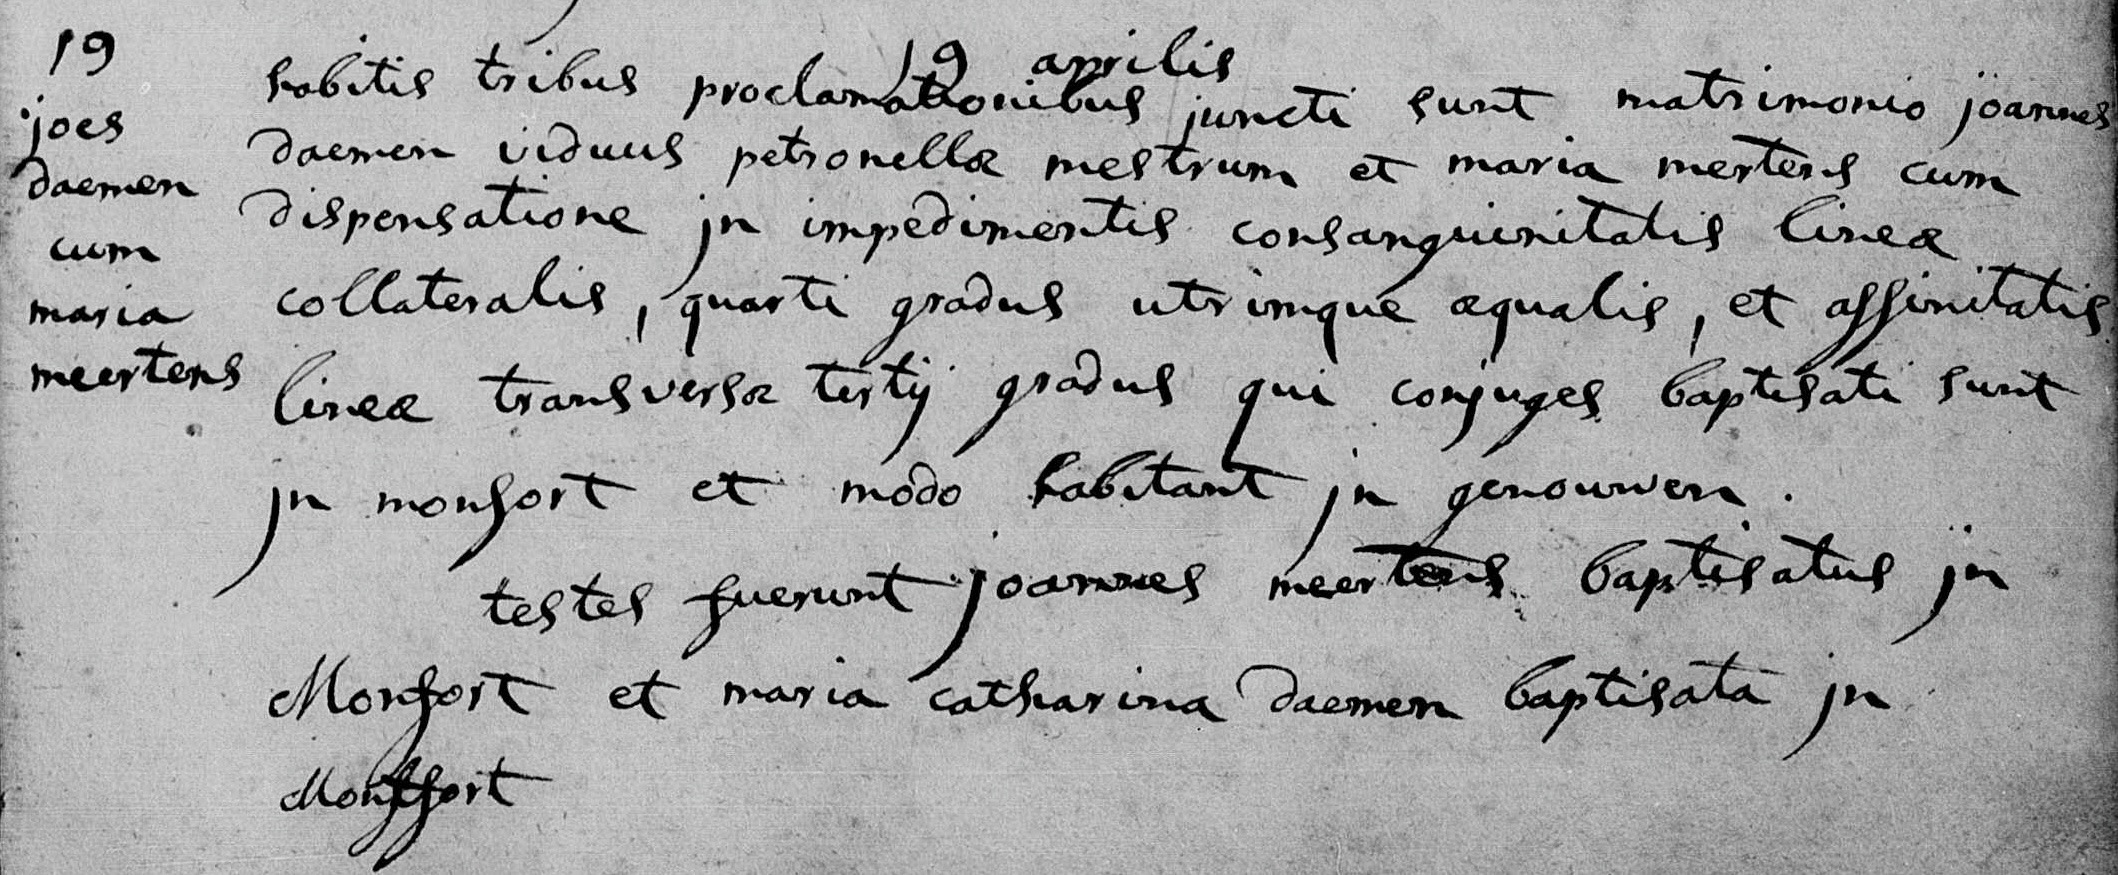 19
joes
daemen
cum
maria
meertens
19 aprilis
habitis tribus proclamationibus juncti sunt matrimonio joannes
daemen viduus petronellæ mestrum et maria mertens cum
dispensatione jn impedimentis consanguinitatis lineæ
collateralis, quarti gradus utrimque æqualis, et affinitatis
lineæ transversæ tertij gradus qui conjuges baptisati sunt
jn monfort et modo habitant jn genouwen.
testes fuerunt joannes meertens baptisatus jn
Monfort et maria catharina daemen baptisata jn
Montfort